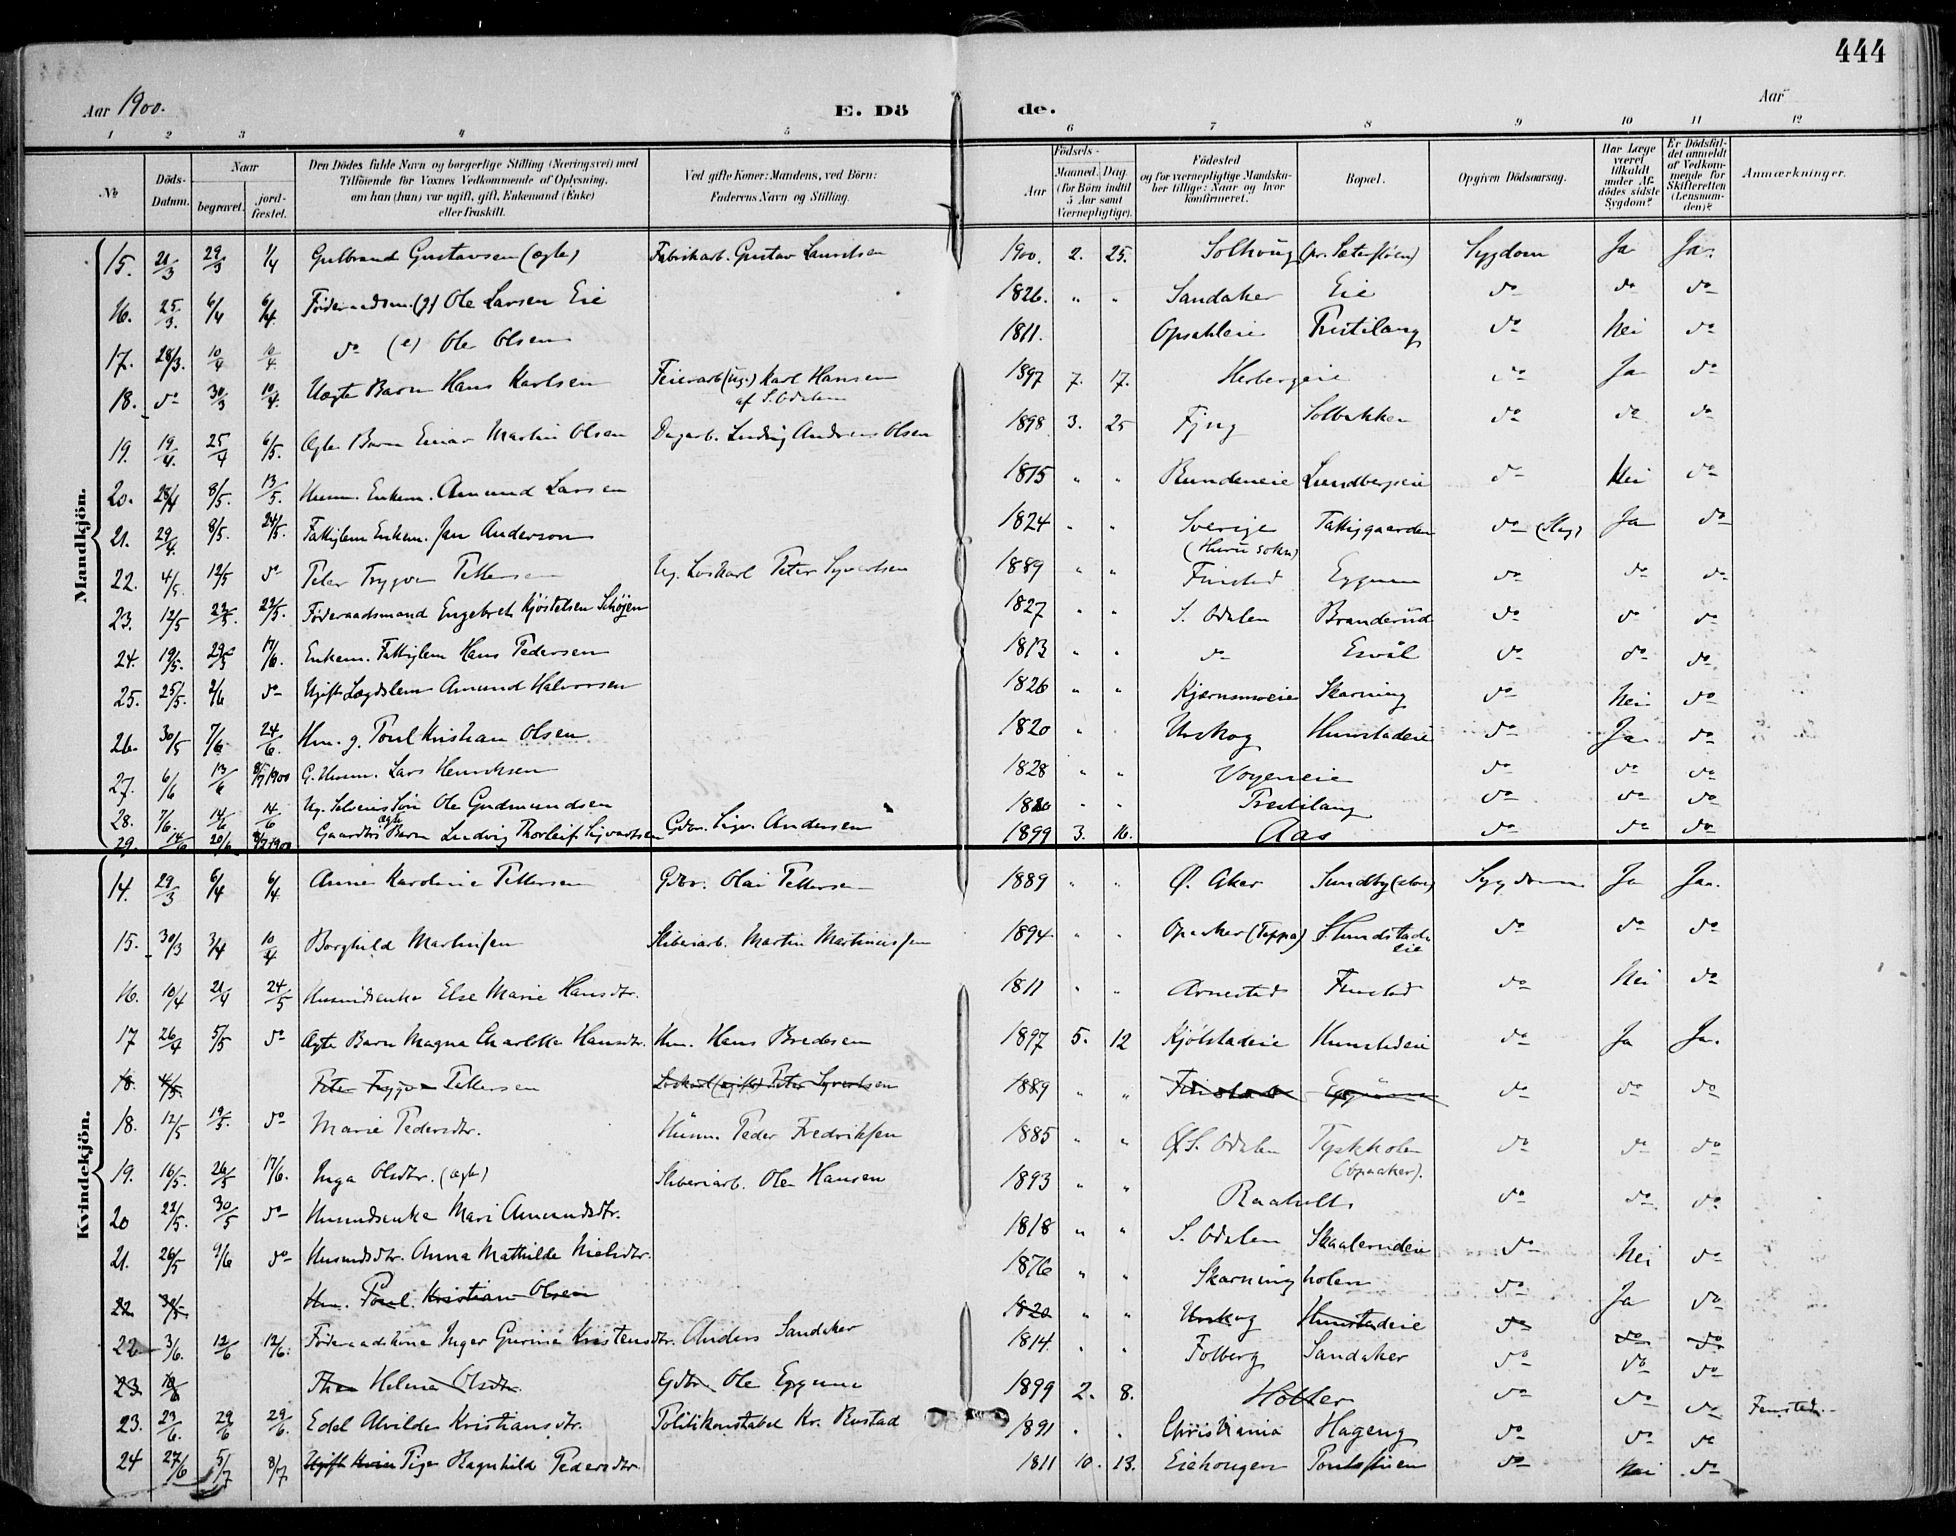 444
Aar 1900. E. Dö de. Aar
1 2 3 4 5 6 7 8 9 10 11 12
№ Döds-Datum. Naar begravet. jordfæstet. Den Dödes fulde Navn og borgerlige Stilling (Næringsvei) med Tilföiende for Voxnes Vedkommende af Oplysning, om han (hun) var ugift, gift, Enkemand (Enke) eller fraskilt. Ved gifte Koner: Mandens, ved Börn: Faderens Navn og Stilling. Födsels- Aar Maaned. Dag. (for Börn indtil 5 Aar samt Værnepligtige). Födested og for værnepligtige Mandskaber tillige: Naar og hvor konfirmeret. Bopæl. Opgiven Dödsaarsag. Har Læge været tilkaldt under Afdödes sidste Sygdom? Er Dödsfaldet anmeldt af Vedkommende for Skifteretten (Lensmanden)? Anmærkninger.
Mandkjön.
15. 21/3 29/3 1/4 Gulbrand Gustavsen (ægte) Fabrikarb. Gustav Lauritsen 1900. 2. 25. Solhoug (pr. Sæterstøen) Sygdom Ja Ja.
16. 25/3. 6/4 6/4. Föderaadsm. (g) Ole Larsen Eie 1826. " " Sandaker Eie do do do
17. 28/3. 10/4 10/4 do (e) Ole Olsen 1811. Opsahleie Trestilang do Nei do
18. do 30/3 10/4. Uægte Barn Hans Karlsen Feierarb (ug.) Karl Hansen af S. Odalen 1897 7. 17. Herbergeie do Ja do
19. 19/4. 25/4 6/5. Ægte Barn Einar Martin Olsen Dagarb. Ludvig Andreas Olsen 1898 3. 25 Fjug Solbakken do do do
20. 28/4 8/5. 13/5. Husm. Enkem. Amund Larsen 1815 " " Rundeneie Lundbergeie do Nei do
21. 29/4. 8/5. 24/5. Fattiglem Enkem. Jan Anderson 1824 " " Sverige Fattiggaarden do Ja do
22. 4/5. 12/5 do Peter Trygve Pettersen Ug. Løskarl Peter Syvertsen 1889 " " Finstad do do do
23. 12/5 22/5. 22/5. Föderaadsmand Engebret Kjöstelsen Schöjen 1827 " " S. Odalen Branderud do do do
24. 19/5. 29/5 17/6. Enkem. Fattiglem Hans Pedersen 1813 " " do Esvál do do do
25. 25/5. 2/6 do Ugift Lægdslem Amund Halvorsen 1826 " " Kjærnsmoeie Skarning do Nei. do
26. 30/5 7/6 24/6. Hm. g. Poul Kristian Olsen 1820 " Urskog Hunstadeie do Ja do
27. 6/6 13/6 8/7 1900 G. Husm. Lars Henriksen 1828 " " Voyeneie do do do
28. 7/6. 14/6 14/6 Ug. Søn Ole Gudmundsen " " Trestilang do do do
29. 14/6 20/6 8/7 1900 Gaardbrs ægte Barn Ludvig Thorleif Sigvartsen Gdbr. Sigv. Andersen 1899 3. 10. Aas do do do
Kvindekjön.
14. 29/3 6/4 6/4 Anne Karoline Pettersen Gdbr. Olai Pettersen 1889 " " Ø. Aker Sundby (store) Sygdom Ja Ja.
15. 30/3 3/4 10/4 Borghild Martinsen Sliberiarb. Martin Martiniussen 1894 " " Opaaker (Toppa) Hundstadeie do do do
16. 10/4 21/4 24/5 Husmdsenke Else Marie Hansdtr. 1811 " " Arnestad Finstad do Nei do
17 26/4 5/5 do Ægte Barn Magna Charlotte Hansdtr. Hm. Hans Bredesen 1897 5. 12 Kjölstadeie Hunstadeie do Ja Ja.
18. 4/5. Peter Trygve Pettersen Løskarl (ugift) Peter Syvertsen 1889 " " Finstad do do do
18. 12/5 19/5. do Marie Pedersdtr. Husm. Peder Fredriksen 1885 " " S. Odalen Tyskholen (Opaaker). do do do
19. 16/5. 26/5 17/6. Inga Olsdtr. (ægte) Sliberiarb. Ole Hansen 1893 " " Raaholt do do do
20 22/5. 30/5 do Husmdsenke Mari Amundsdtr. 1818 " " S. Odalen Skaalerudeie do Nei do
21. 26/5 9/6 do Husmdsdtr. Anna Mathilde Nielsdtr. 1876 " " Skarningholen do Ja do
22 30/5. Hm. Poul Kristian Olsen 1820 " " Urskog Hunstadeie do do do
22 3/6. 12/6 12/6. Föderaadskone Inger Gurine Kristensdtr. Anders Sandaker 1814. " " Folberg Sandaker do do do
23 Thea Helene Olsdtr. Gdbr. Ole 1899 2. 8. Holter do do do Finstad.
23. 23/6. 29/6 29/6. Edel Alvilde Kristiansdtr. Politikonstabel Kr. Rustad 1891 " " Christiania Hageng do do do
24 27/6 5/7 8/7 Ugift Pige Ragnhild Pedersdtr. 1811 10. 13. Eiehougen do Nei do